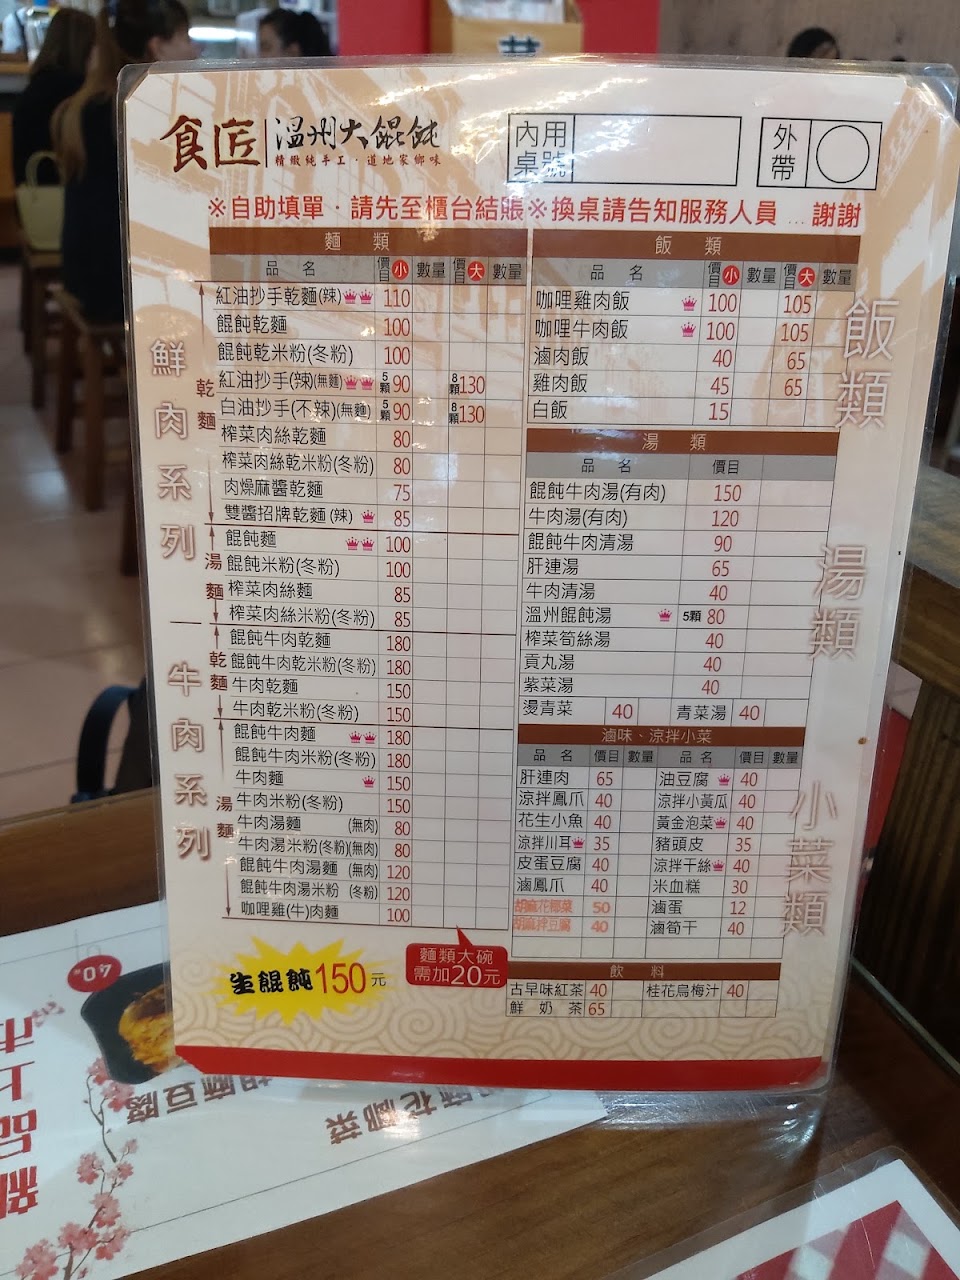 食匠 溫州大餛飩
精緻純手工·道地家鄉味
內用桌號
外帶
※自助填單·請先至櫃台結賬※換桌請告知服務人員...謝謝
麵 類
品 名 價目 小 數量 價目 大 數量
鮮肉系列
乾麵
紅油抄手乾麵(辣) 110
餛飩乾麵 100
餛飩乾米粉(冬粉) 100
紅油抄手(辣)(無麵) 5顆 90 8顆 130
白油抄手(不辣)(無麵) 5顆 90 8顆 130
榨菜肉絲乾麵 80
榨菜肉絲乾米粉(冬粉) 80
肉燥麻醬乾麵 75
雙醬招牌乾麵(辣) 85
湯麵
餛飩麵 100
餛飩米粉(冬粉) 100
榨菜肉絲麵 85
榨菜肉絲米粉(冬粉) 85
牛肉系列
乾麵
餛飩牛肉乾麵 180
餛飩牛肉乾米粉(冬粉) 180
牛肉乾麵 150
牛肉乾米粉(冬粉) 150
湯麵
餛飩牛肉麵 180
餛飩牛肉米粉(冬粉) 180
牛肉麵 150
牛肉米粉(冬粉) 150
牛肉湯麵 (無肉) 80
牛肉湯米粉(冬粉)(無肉) 80
餛飩牛肉湯麵 (無肉) 120
餛飩牛肉湯米粉 (冬粉) 120
咖哩雞(牛)肉麵 100
生餛飩150元
麵類大碗
需加20元
飯 類
品 名 價目 小 數量 價目 大 數量
咖哩雞肉飯 100 105
咖哩牛肉飯 100 105
滷肉飯 40 65
雞肉飯 45 65
白飯 15
飯類
湯 類
品 名 價目
餛飩牛肉湯(有肉) 150
牛肉湯(有肉) 120
餛飩牛肉清湯 90
肝連湯 65
牛肉清湯 40
溫州餛飩湯 5顆 80
榨菜筍絲湯 40
貢丸湯 40
紫菜湯 40
燙青菜 40 青菜湯 40
湯類
滷味、涼拌小菜
品 名 價目 數量 品 名 價目 數量
肝連肉 65 油豆腐 40
涼拌鳳爪 40 涼拌小黃瓜 40
花生小魚 40 黃金泡菜 40
涼拌川耳 35 豬頭皮 35
皮蛋豆腐 40 涼拌干絲 40
滷鳳爪 40 米血糕 30
胡麻花椰菜 50 滷蛋 12
胡麻拌豆腐 40 滷筍干 40
小菜類
飲 料
古早味紅茶 40 桂花烏梅汁 40
鮮 奶 茶 65
新品上市
40
胡麻豆腐
胡麻花椰菜